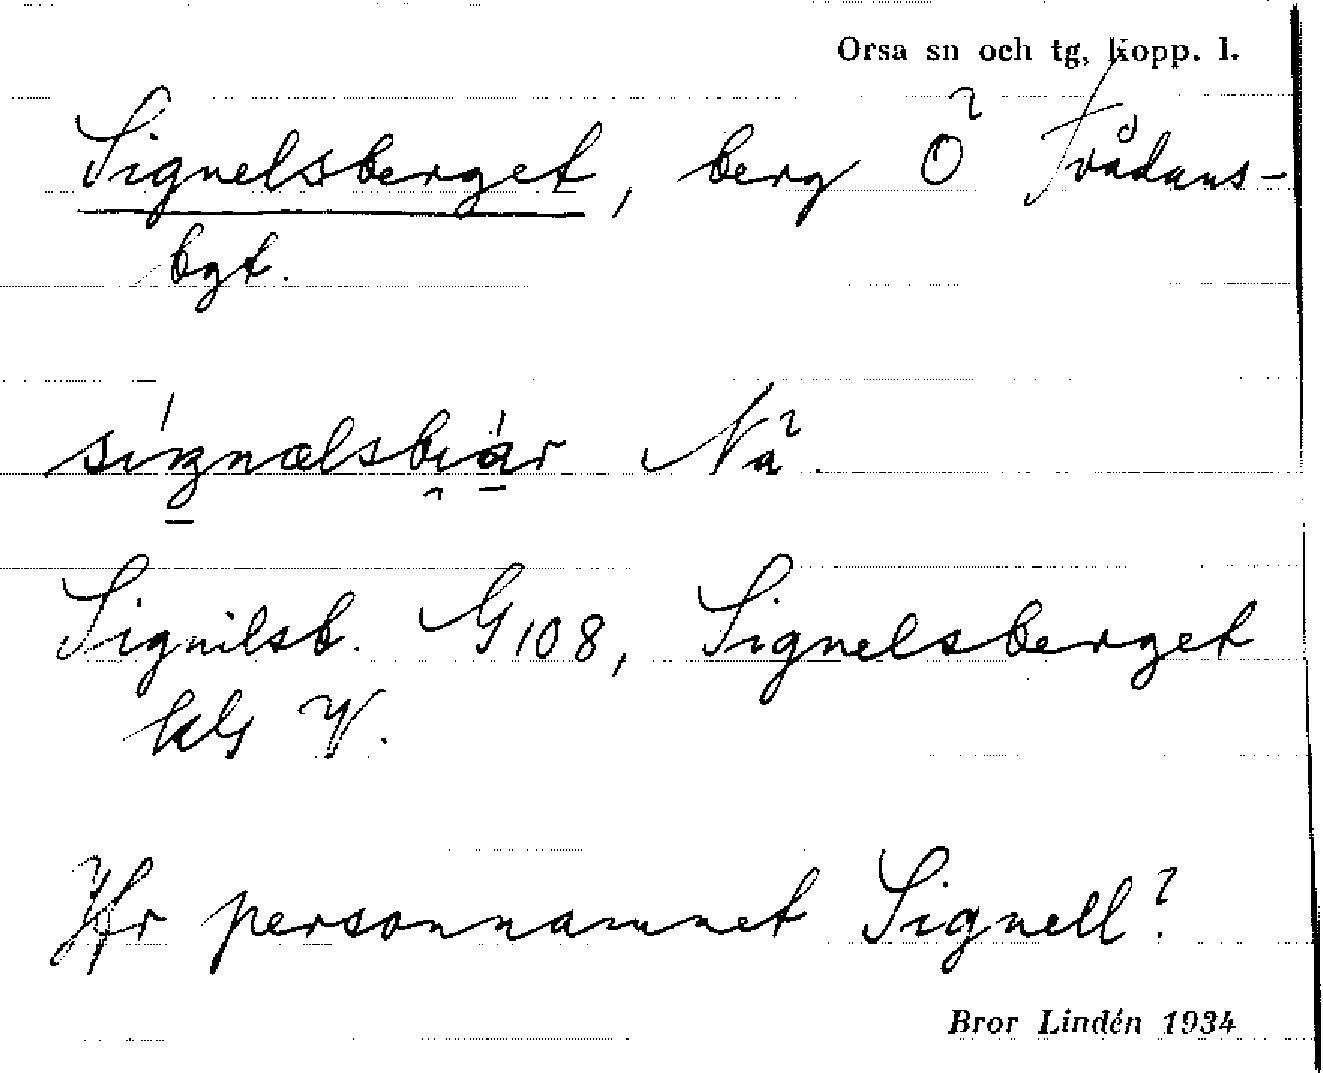 Orsa sn och tg, Kopp. l.
Signelsberget, berg Ö Trådans-
bgt.
Signilsb. G 108, Signelsberget
Jfr personnamnet Signell?
Bror Lindén 1934